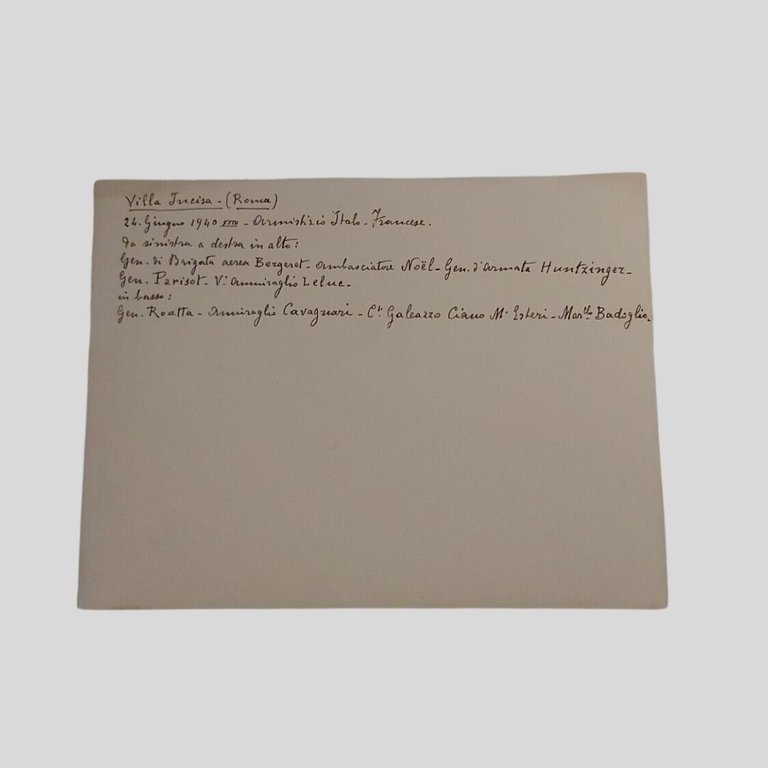 Villa Incisa - (Roma)
24. Giugno 1940 XVIII - Armistizio Italo - Francese.
Da sinistra a destra in alto:
Gen. di Brigata aerea Bergeret - Ambasciatore Noël - Gen. d'Armata Huntzinger -
Gen. Parisot - V. Ammiraglio Leluc -
in basso:
Gen. Roatta - Amiraglio Cavagnari - C.te Galeazzo Ciano M. Esteri - Mar.llo Badoglio.